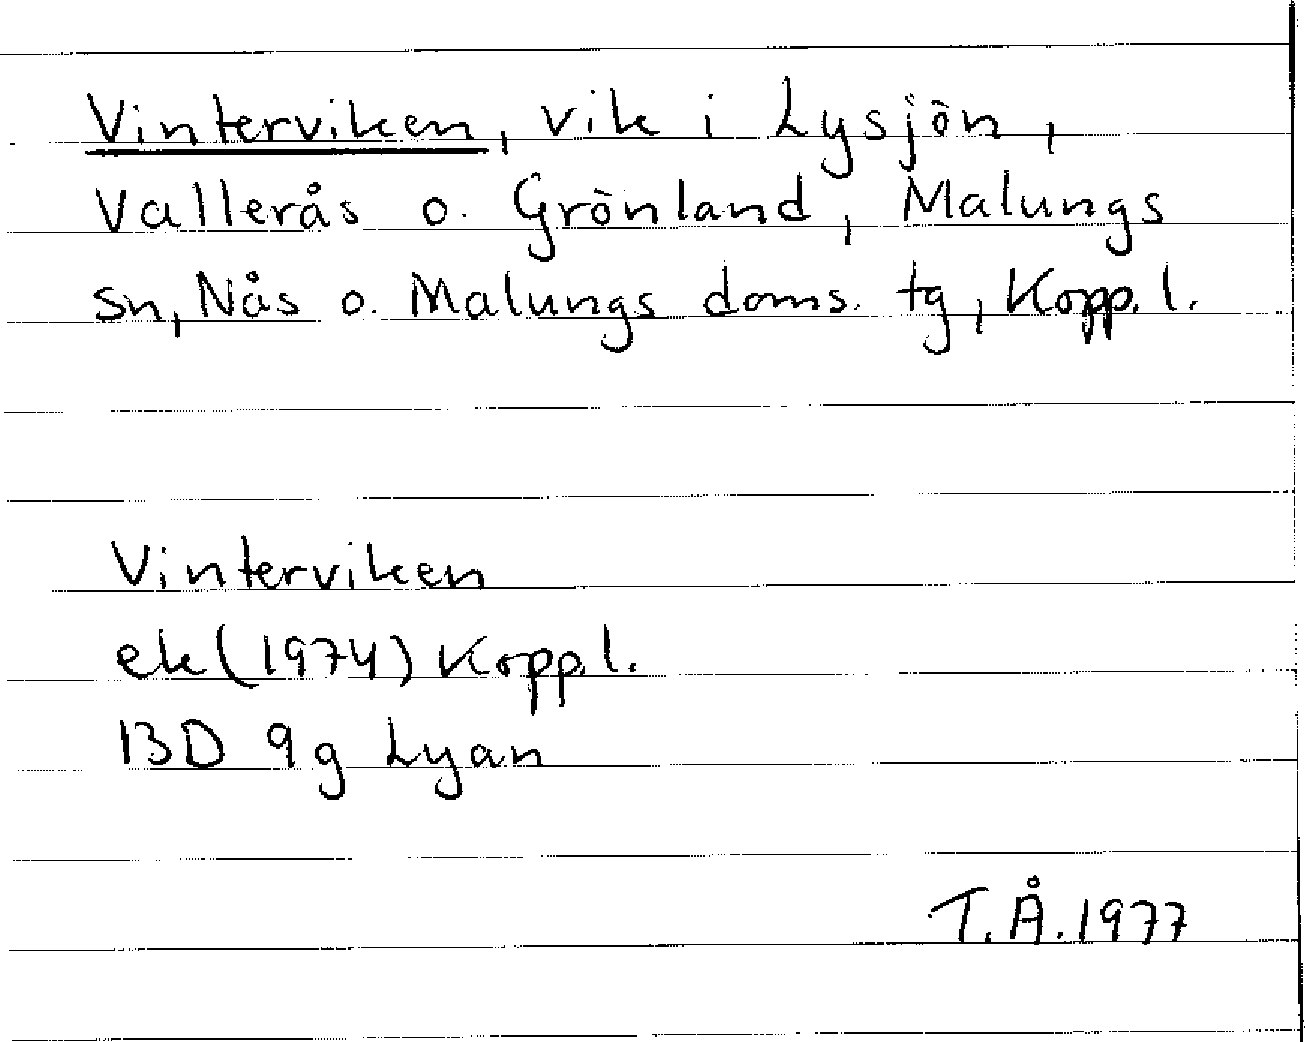 Vinterviken, vik i Lysjön,
Vallerås o. Grönland, Malungs
sn, Nås o. Malungs doms. tg, Kopp. l.
Vinterviken
ek (1974) Kopp.l.
13D 9g Lyan
T.Å. 1977